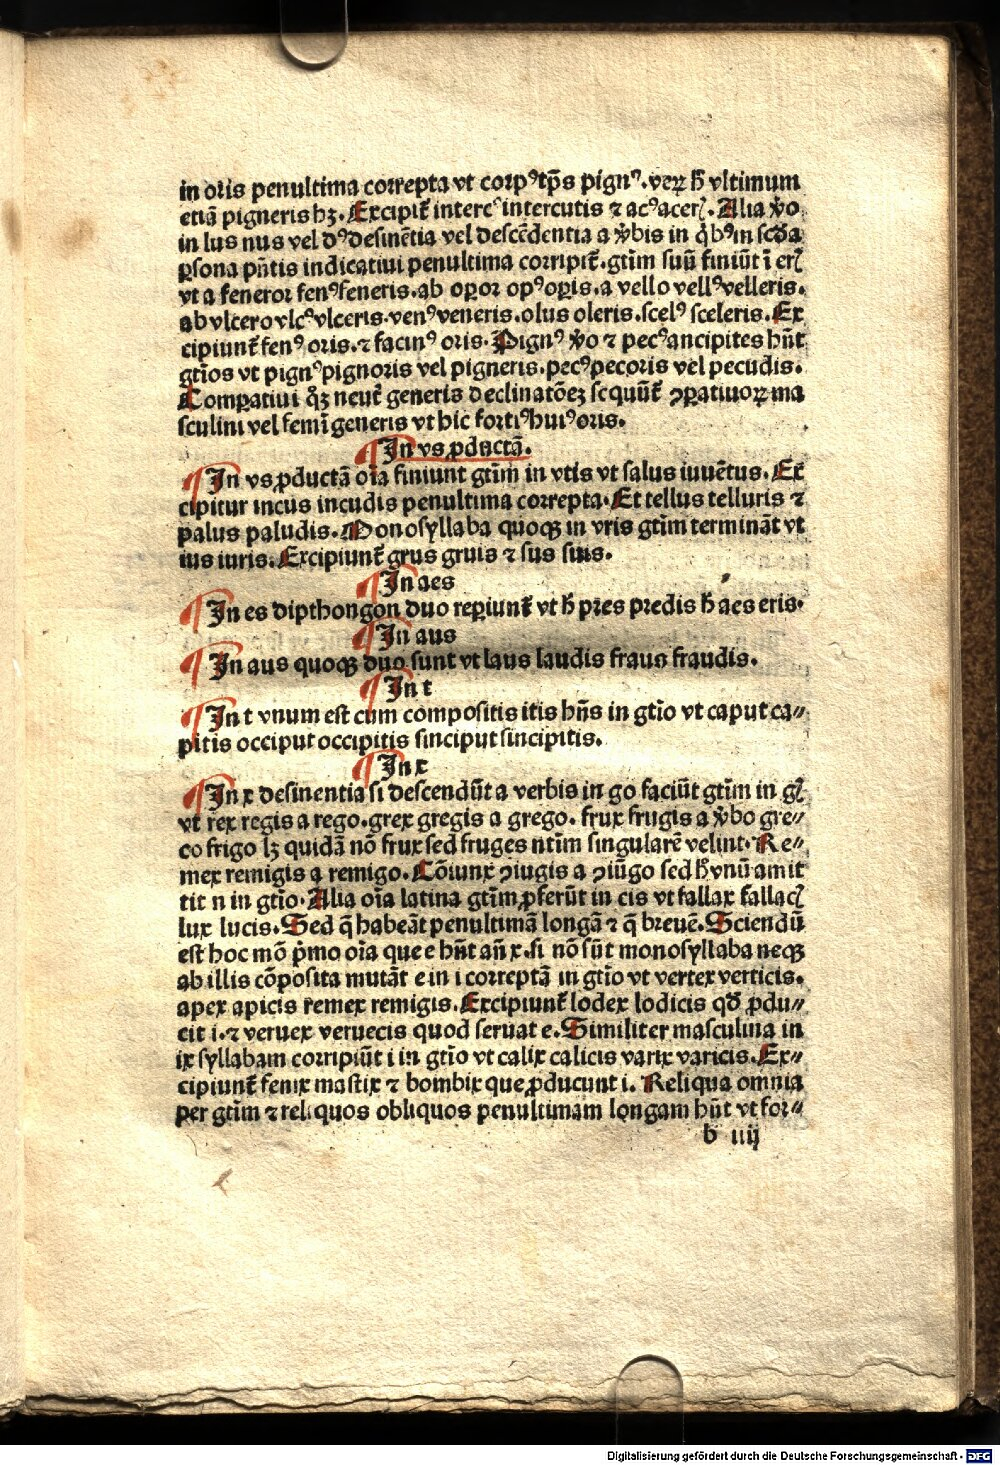 in oris penultima correpta vt corpꝰ tp̄s pignꝰ. veꝝ h̄ vltimum
etiā pigneris hꝫ. Excipit̄ intercꝰ intercutis ⁊ acꝰ acerꝭ. Alia v̄o
in lus nus vel dꝰ desinētia vel descēdentia a v̄bis in q̄bꝰ in scd̄a
ꝑsona pn̄tis indicatiui penultima corripit̄. gtīm suū finiūt ī erꝭ
vt a feneror fenꝰ feneris. ab oꝑor opꝰ oꝑis. a vello vellꝰ velleris.
ab vlcero vlcꝰ vlceris. venꝰ veneris. olus oleris. scelꝰ sceleris. Ex
cipiunt̄ fenꝰ oris. ⁊ facinꝰ oris. Pignꝰ v̄o ⁊ pecꝰ ancipites hn̄t
gtīos vt pignꝰ pignoris vel pigneris. pecꝰ pecoris vel pecudis.
Comꝑatiui qͥꝫ neut̄ generis declinatōeꝫ sequūt̄ ꝯꝑatiuoꝝ ma
sculini vel femī generis vt hic fortiꝰ huiꝰ oris.
¶ In vs ꝓductā.
¶ In vs ꝓductā oīa finiunt gtīm in vtis vt salus iuuētus. Ex
cipitur incus incudis penultima correpta. Et tellus telluris ⁊
palus paludis. Monosyllaba quoqꝫ in vris gtīm termināt vt
ius iuris. Excipiunt̄ grus gruis ⁊ sus suis.
¶ In aes
¶ In es dipthongon duo reꝑiunt̄ vt h̄ pres predis h̄ aes eris.
¶ In aus
¶ In aus quoqꝫ duo sunt vt laus laudis fraus fraudis.
¶ In t
¶ In t vnum est cum compositis itis hn̄s in gtīo vt caput ca⸗
pitis occiput occipitis sinciput sincipitis.
¶ In x
¶ In x desinentia si descendūt a verbis in go faciūt gtīm in gꝭ
vt rex regis a rego. grex gregis a grego. frux frugis a v̄bo gre⸗
co frigo lꝫ quidā nō frux sed fruges ntīm singularē velint. Re⸗
mex remigis a remigo. Cōiunx ꝯiugis a ꝯiūgo sed h̄ vnū amit
tit n in gtīo. Alia oīa latina gtīm ꝓferūt in cis vt fallax fallacꝭ
lux lucis. Sed q̄ habeāt penultimā longā ⁊ q̄ breuē. Sciendū
est hoc mō pͥmo oīa que e hn̄t an̄ x. si nō sūt monosyllaba neqꝫ
ab illis cōposita mutāt e in i correptā in gtīo vt vertex verticis.
apex apicis remex remigis. Excipiunt̄ lodex lodicis qd̄ ꝓdu⸗
cit i. ⁊ veruex veruecis quod seruat e. Similiter masculina in
ix syllabam corripiūt i in gtīo vt calix calicis varix varicis. Ex⸗
cipiunt̄ fenix mastix ⁊ bombix que ꝓducunt i. Reliqua omnia
per gtīm ⁊ reliquos obliquos penultimam longam hn̄t vt for⸗
b iiij
Digitalisierung gefördert durch die Deutsche Forschungsgemeinschaft - DFG